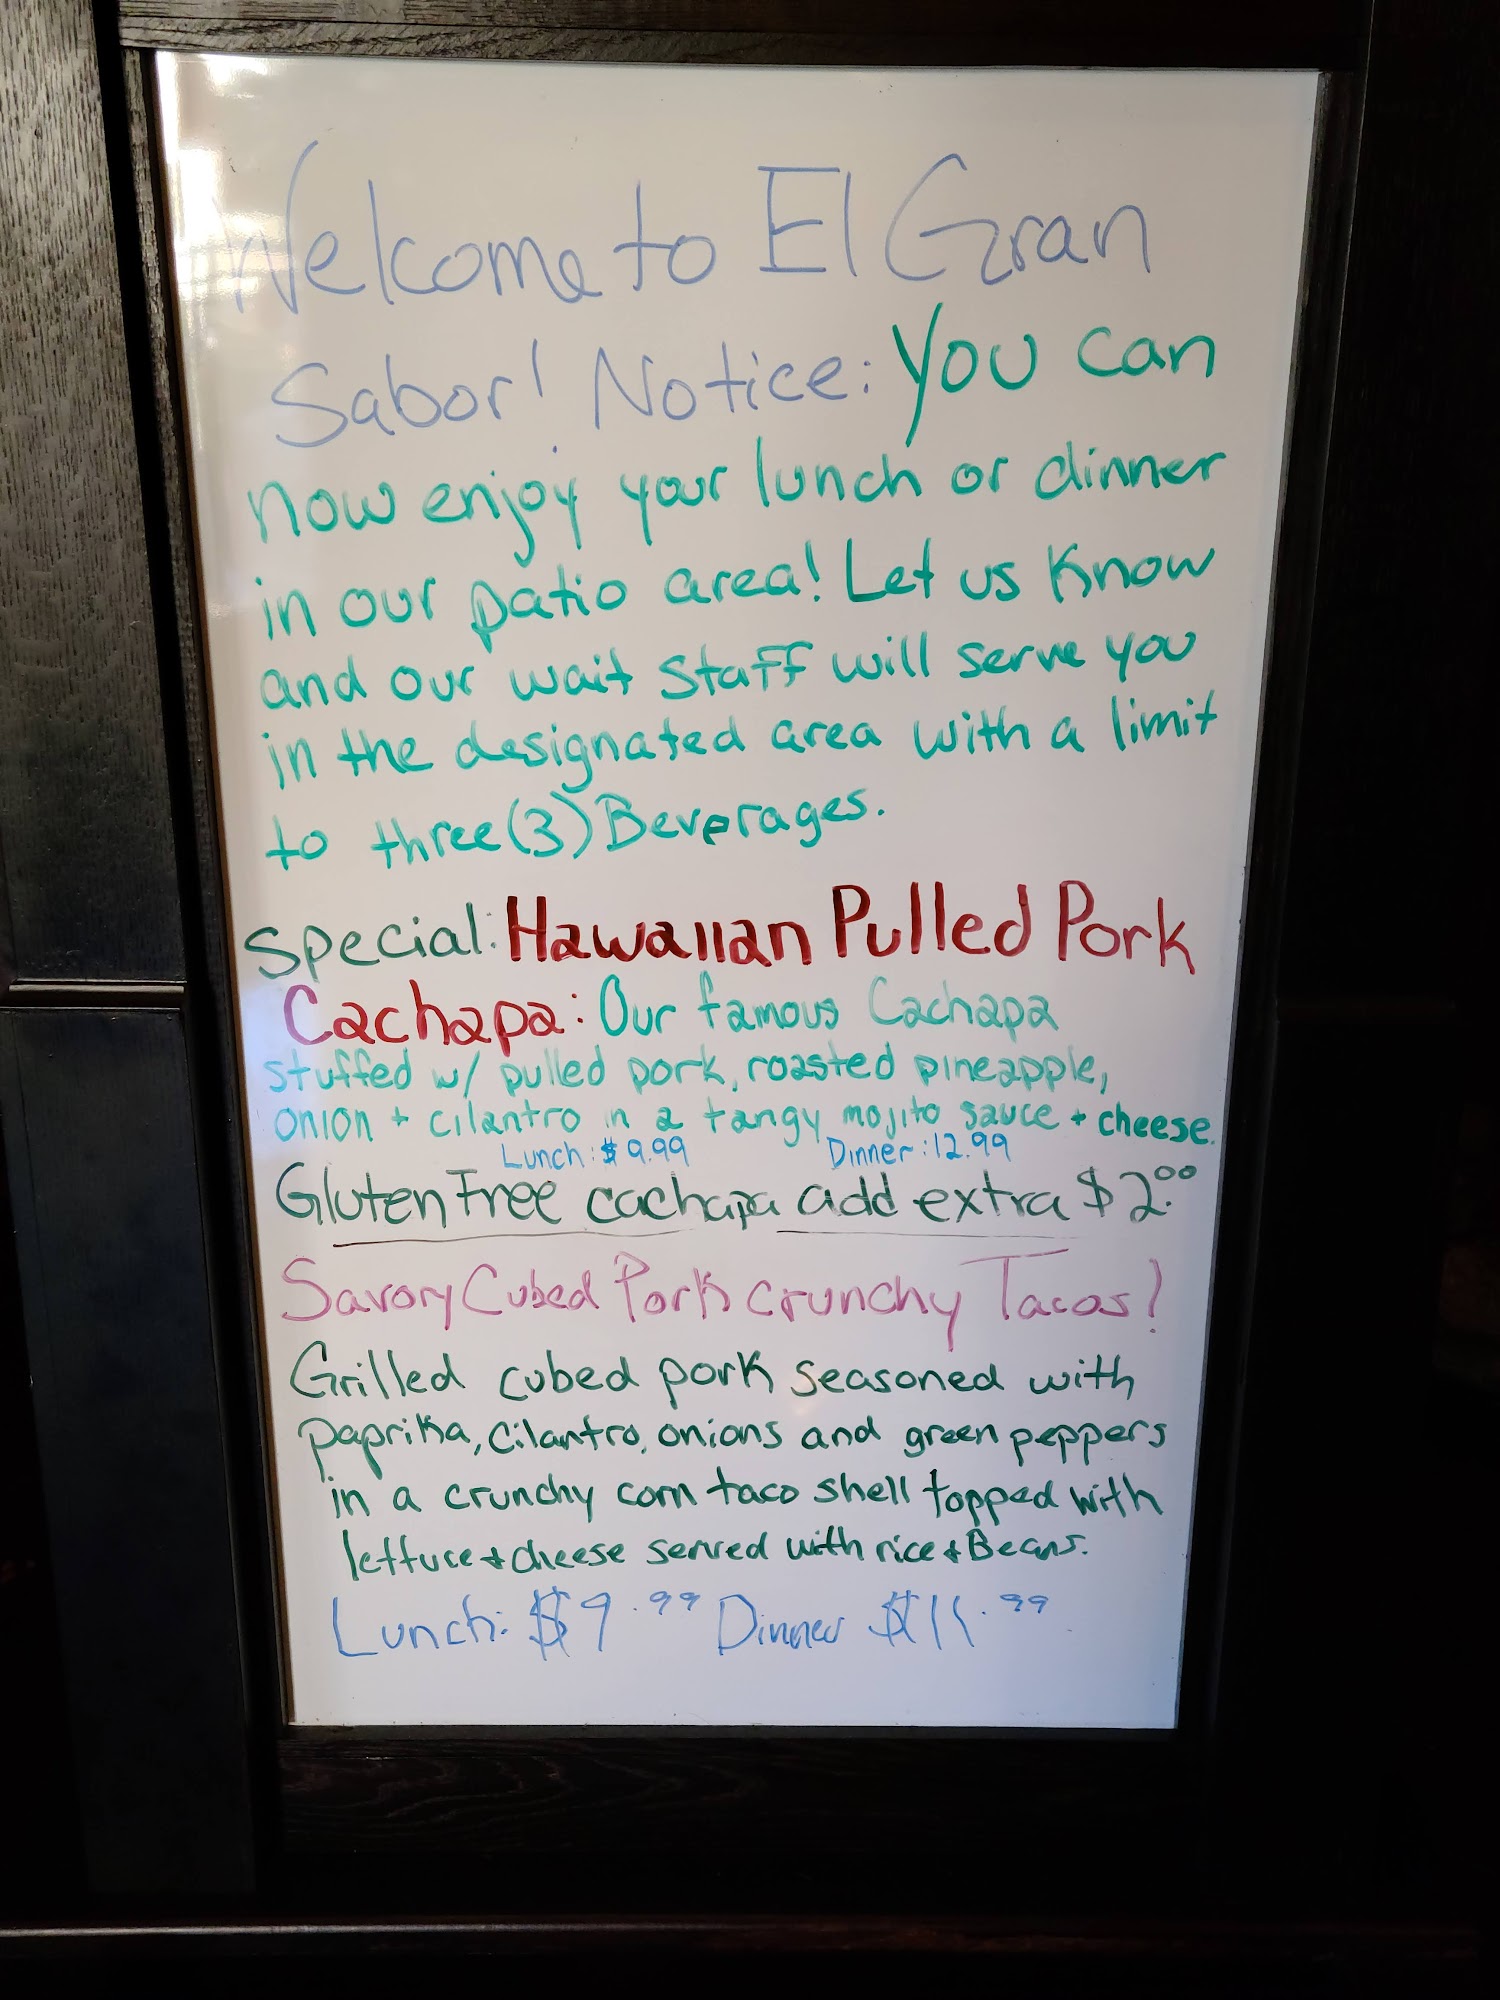 Welcome to El Gran
Sabor! Notice: You can
now enjoy your lunch or dinner
in our patio area! Let us know
and our wait staff will serve you
in the designated area with a limit
to three (3) Beverages.
Special: Hawaiian Pulled Pork
Cachapa: Our famous Cachapa
stuffed w/ pulled pork, roasted pineapple,
onion + cilantro in a tangy mojito sauce + cheese.
Lunch: $9.99 Dinner: 12.99
Gluten Free cachapa add extra $2.00
Savory Cubed Pork Crunchy Tacos!
Grilled cubed pork seasoned with
paprika, cilantro, onions and green peppers
in a crunchy corn taco shell topped with
lettuce + cheese served with rice + Beans.
Lunch: $9.99 Dinner $11.99